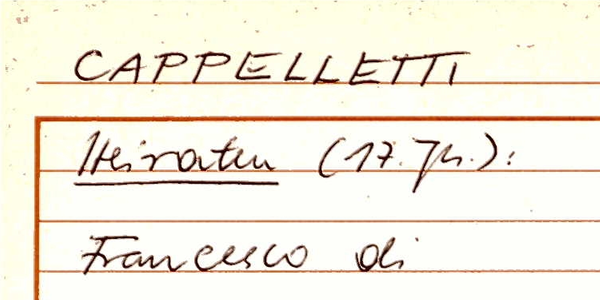 CAPPELLETTI
Heiraten (17. Jh.):
Francesco di